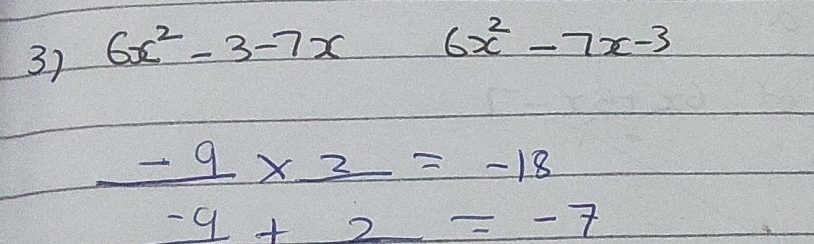 3) 6x² - 3 - 7x 6x² - 7x - 3
-9 × 2 = -18
-9 + 2 = -7